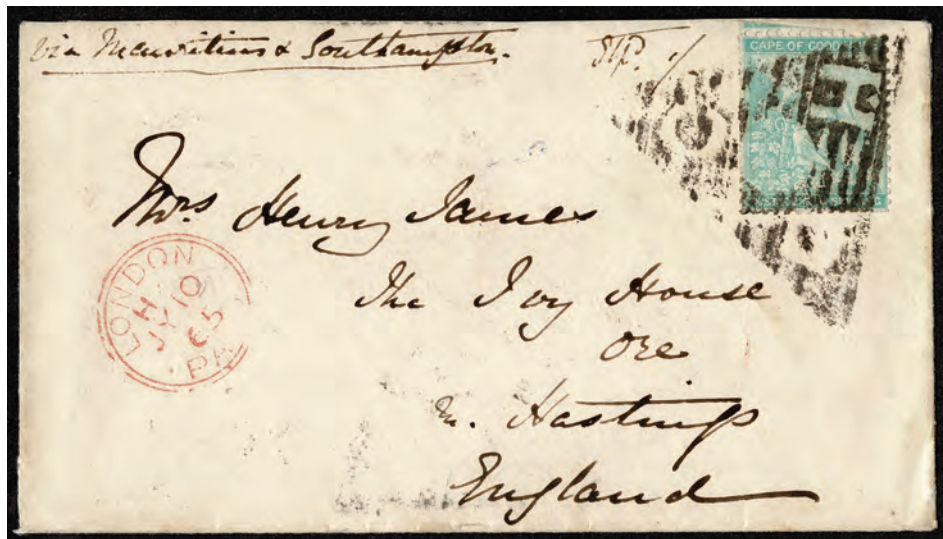 via Mauritius & Southampton.
Stp. 1/
CAPE OF GOOD
Mrs Henry James
The Ivy House
Ore
nr. Hastings
England
LONDON
H
JY 10
65
PA